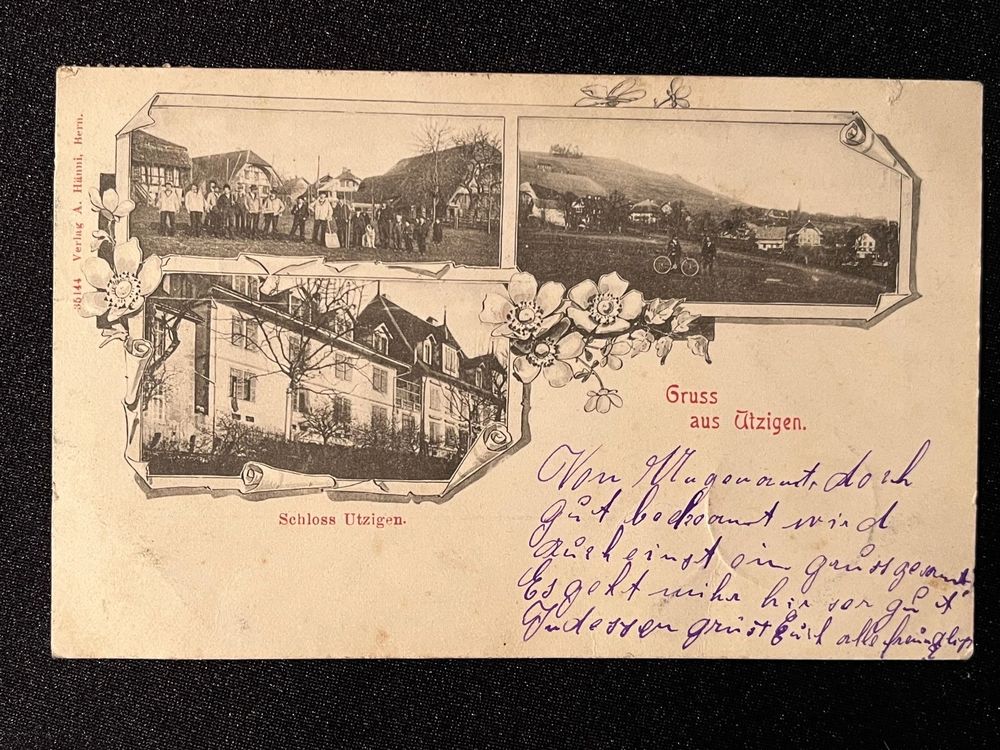 35144 Verlag A. Hänni, Bern.
Gruss
aus Utzigen.
Schloss Utzigen.
Von Ungenamt, doch
gut beckoamt wird
auch einst ein grussgesamt
Es geht mihr hir ser gut
Indessen grüst Euch alle